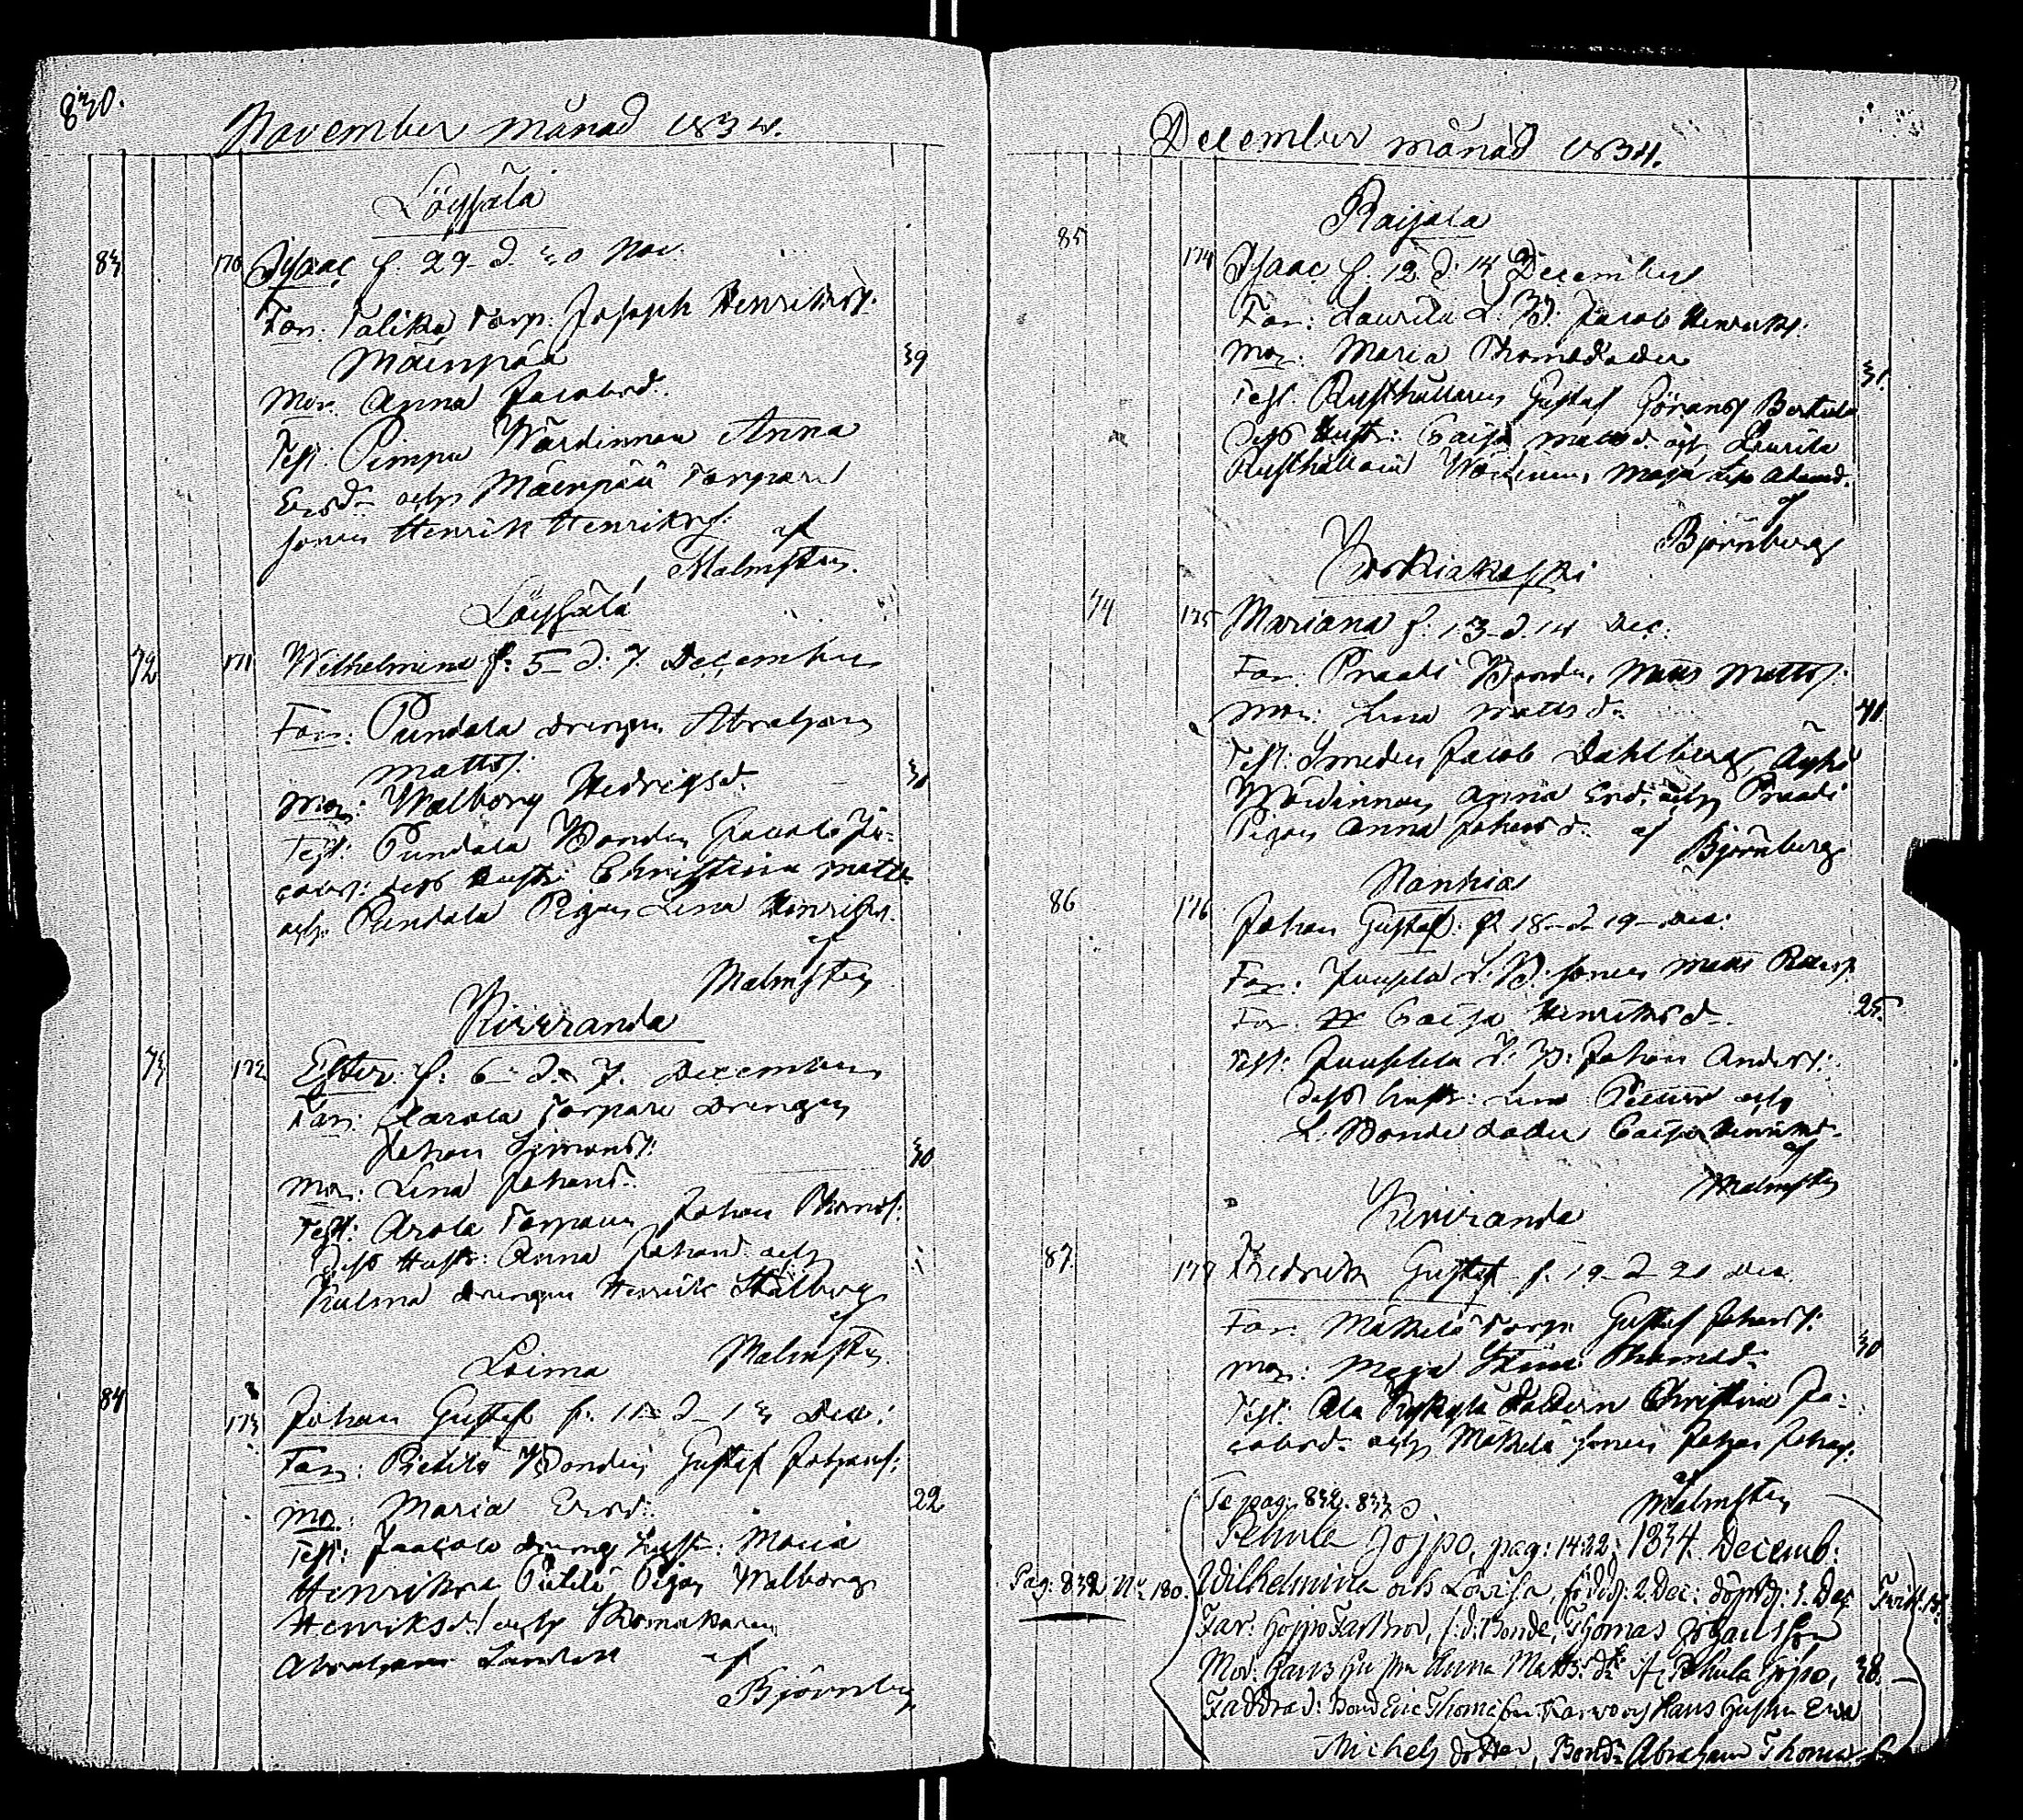 830.
November månad 1834.
Löyssälä
83 170 Isaac f. 29 d. 30 Nov.
Far: Talika Torp: Joseph Henrikss:
Mäenpää 39
Mor: Anna Jacobsd.
Test: Pimpu Wärdinnan Anna
Ersd: och Mäenpää Torpare
sonen Henrik Henrikss: af
Malmsten.
Löyssälä
72 171 Wilhelmina f: 5 d: 7 December
Far: Pundala drengen Abraham
Matts: 31
Mor: Walborg Hedrigsd.
Test: Pundala Bonden Jacob Ja-
cobss: dess Hustr: Christina Matts
och Pundala Pigan Lena Henriksd.
af
Malmsten
Kiviranda
73 172 Ester f: 6 d. 7. December
Far: Arola Torpare Drengen
Johan Simonss: 30
Mor: Lena Johansd.
Test: Arola Torparen Johan Thomss:
dess Hustr: Anna Johansd. och
Kulma drengen Henrik Stålberg
af
Malmsten
Loima
84 173 Johan Gustaf f: 11 d 13 Dec:
Far: Pietilä Bonden Gustaf Johanss:
Mor: Maria Ersd: 22
Test: Jaacola dreng Hustr: Maria
Henriksd: Pietilä Pigan Walborg
Henriksd: och Skomakaren
Abraham af
Björnberg
December månad 1834.
Raijala
85 174 Isaac f. 12. d. 14 December
Far: Laurila L. B: Jacob Henrikss:
Mor: Maria Thomædotter 31.
Test: Rusthållaren Gustaf Göranss Bertula
dess Hustr: Caisa Mattsd. och Laurila
Rusthållare Wärdinnan Maja Abramsd.
af
Björnberg
74 175 Mariana f: 13 d. 14 Dec:
Far: Praati Bonden Matts Mattss:
Mor: Lena Mattsd: 41
Test: Smeden Jacob Dahlberg,
Wärdinnan Anna Ersd: och Praati
Pigan Anna Johansd: af
Björnberg
Nanhia
86 176 Johan Gustaf: f. 18 d 19 Dec:
Far: Juusela L: B: sonen Matts
Far: Caisa Henriksd: 25.
Test: Juusela L: B: Johan Anderss:
dess hustr: Lena och
L. Bonde dotter Caisa Henriksd.
af
Malmsten
Kiviranda
87 177 Fredrik Gustaf f. 19 d 21 Dec
Far: Mäkelä Torp: Gustaf Johanss:
Mor: Maja Stina Thomæd: 30
Test: Ala Kykylä dottern Christina Ja-
cobsd: och Mäkelä sonen Johan Johans:
af
Malmsten
Se pag: 832. 833
Pehula Jojpo, pag: 1422; 1834. Decemb:
Pag: 832 No 180. Wilhelmina och Lovisa, född: 2. Dec: döpt: 3. Dec
Far: Jojpo Farbror, f.d. Bonde, Thomas Johansson
Mor: hans hustru Anna Matts: dr: å Pehula Jojpo, 38.
Faddrar: Bond Eric Thomasson Karvo och hans hustru Eva
Michels dotter, Bond: Abraham Thomass